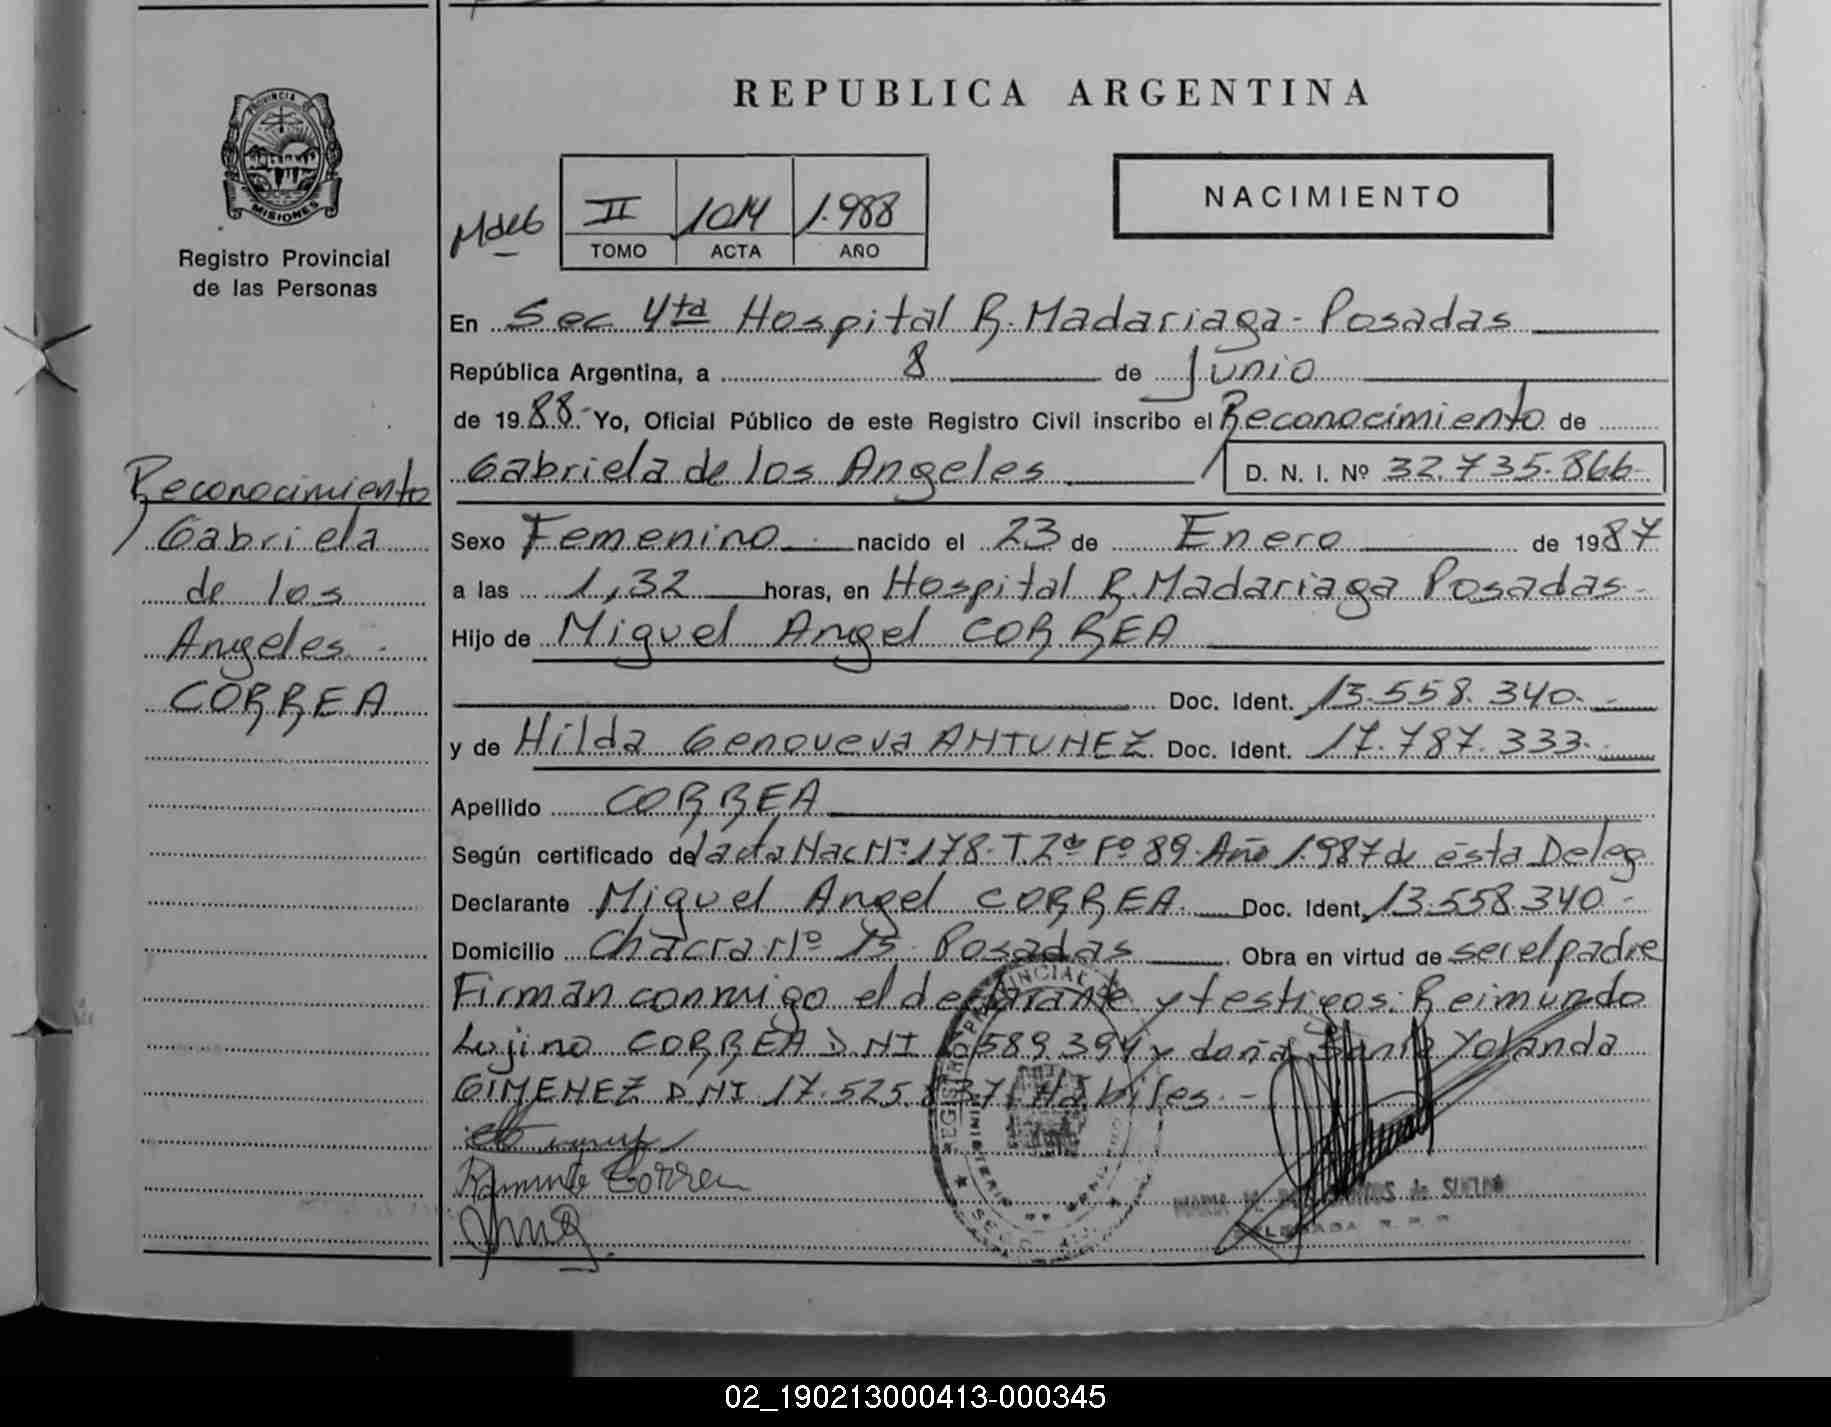 REPUBLICA ARGENTINA
PROVINCIA DE
MISIONES
Registro Provincial
de las Personas
NACIMIENTO
II 1014 1.988
TOMO ACTA AÑO
En Sec 4ta Hospital R. Madariaga - Posadas
República Argentina, a 8 de Junio
de 1988.- Yo, Oficial Público de este Registro Civil inscribo el Reconocimiento de
Gabriela de los Angeles D. N. I. Nº 32.735.866-
Reconocimiento
Gabriela
de los
Angeles -
CORREA
Sexo Femenino nacido el 23 de Enero de 1987
a las 1,32 horas, en Hospital R. Madariaga Posadas-
Hijo de Miguel Angel CORREA
Doc. Ident. 13.558.340-
y de Hilda Genoveva ANTUNEZ Doc. Ident. 17.787.333-
Apellido CORREA
Según certificado del acta Nac Nº 178- T 2do Fº 89- Año 1.987 de ésta Deleg
Declarante Miguel Angel CORREA. Doc. Ident. 13.558.340-
Domicilio Chacra Nº 15 Posadas Obra en virtud de ser el padre
Firman conmigo el declarante y testigos: Reimundo
Lujino CORREA DNI 589.394 y doña Yolanda
GIMENEZ DNI 17.525. Hábiles.-
Correa
02_190213000413-000345